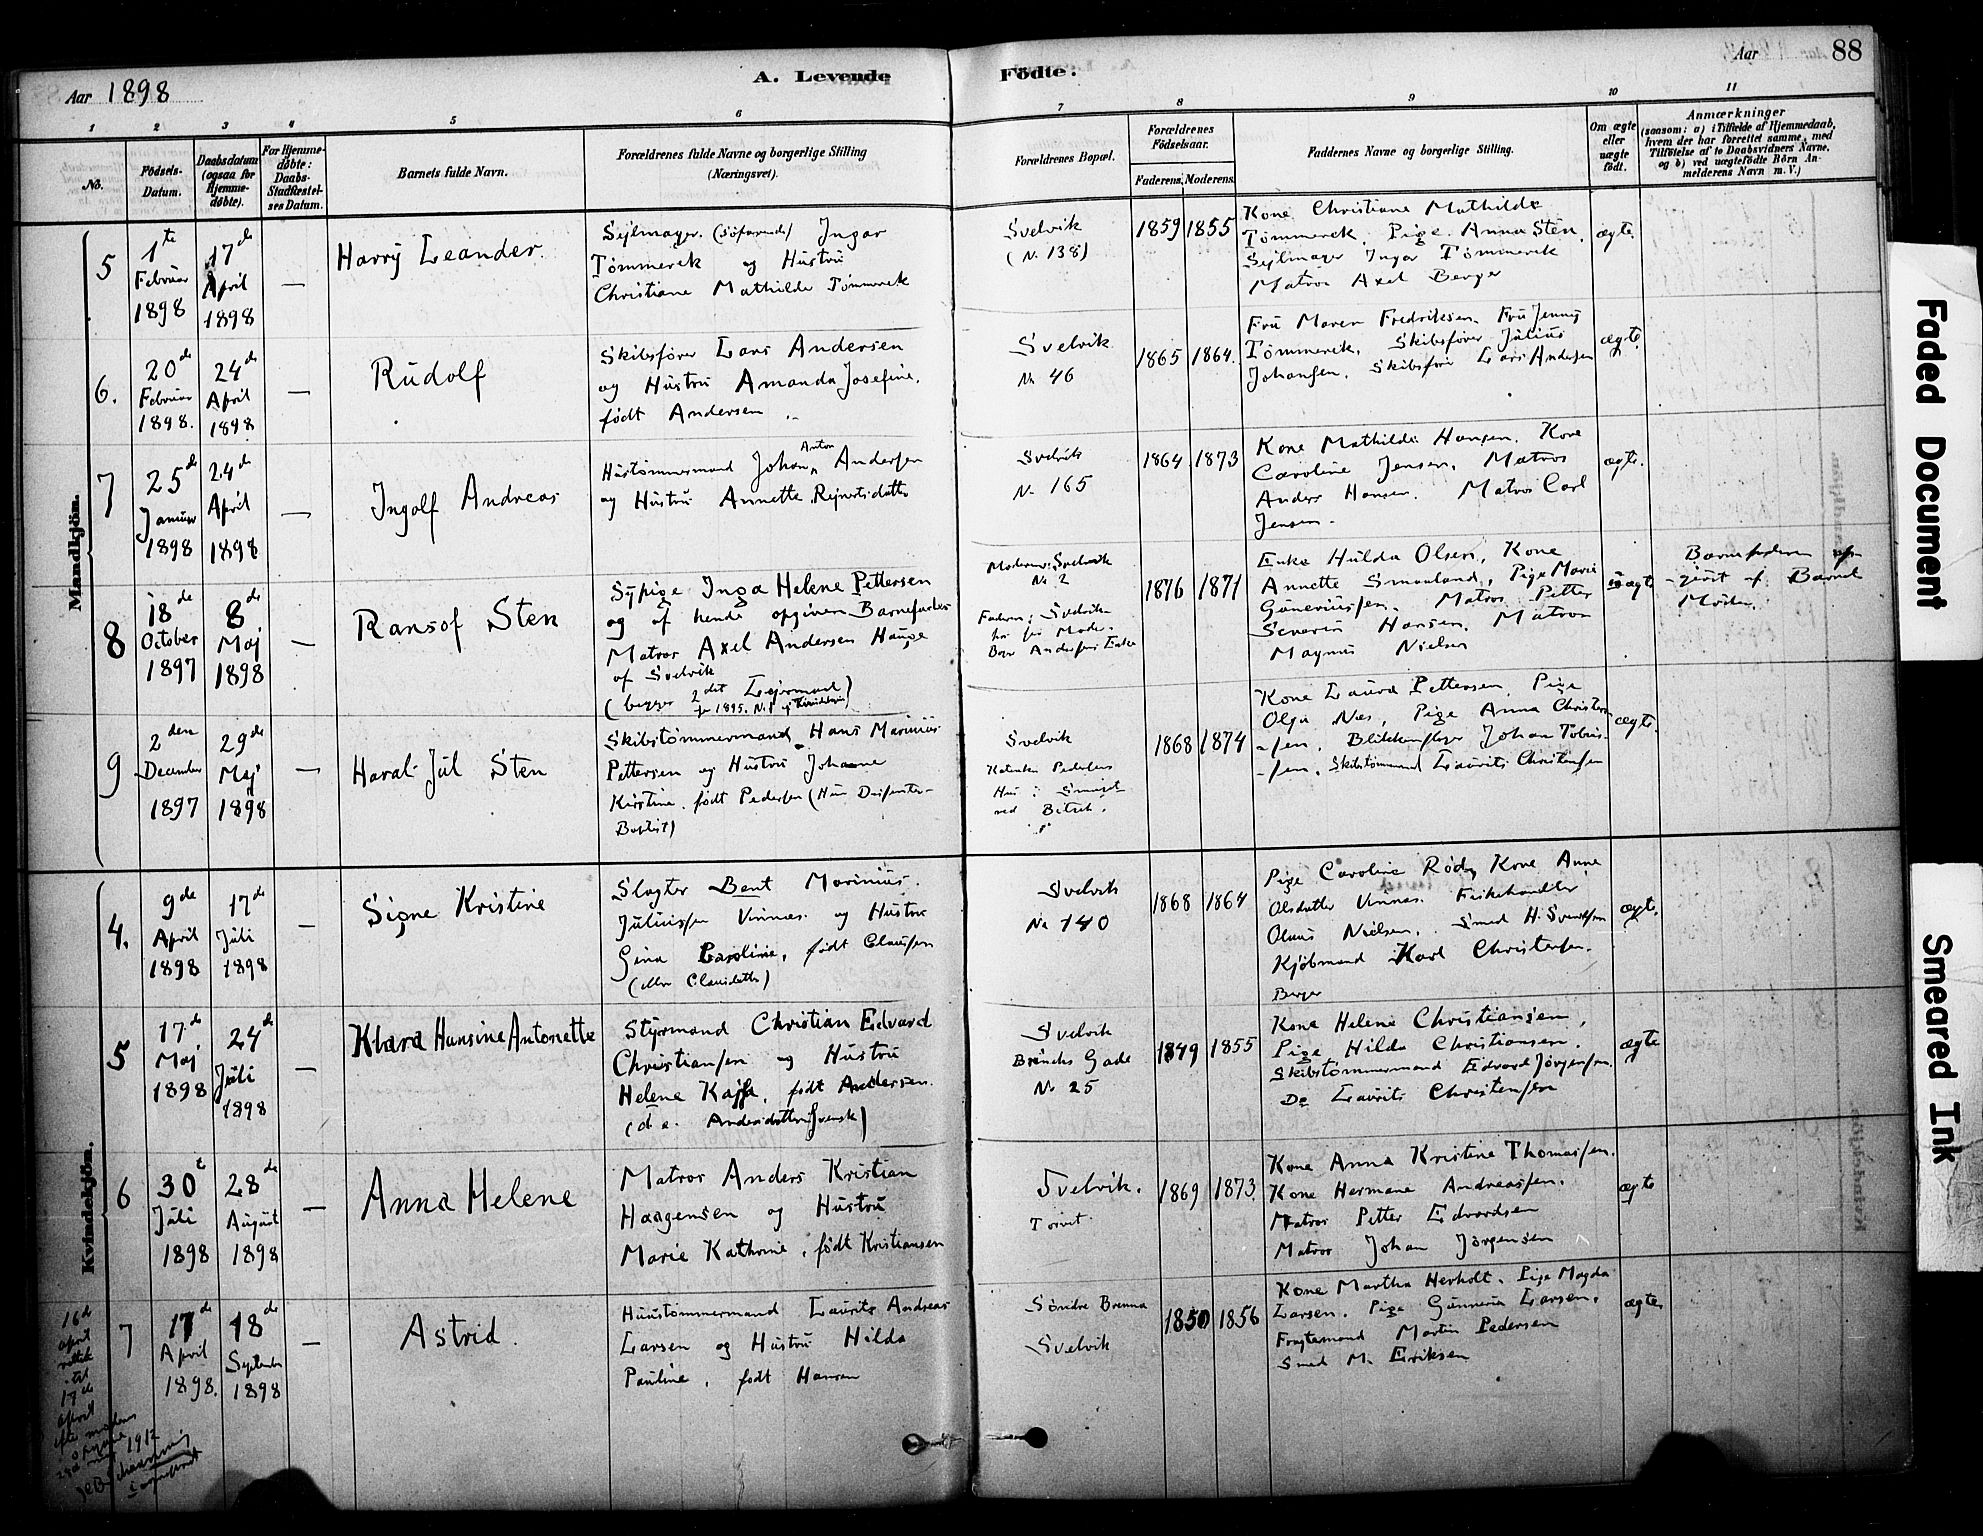 Aar 1898
A. Levende
Födte.
Aar 88
1 2 3 4 5 6 7 8 9 10 11
No.
Födsels-Datum.
Daabsdatum (ogsaa for Hjemmedöbte).
For Hjemmedöbte: Daabs-Stadfæstelses Datum.
Barnets fulde Navn.
Forældrenes fulde Navne og borgerlige Stilling
(Næringsvei).
Forældrenes Bopæl.
Forældrenes Födselsaar.
Faderens. Moderens.
Faddernes Navne og borgerlige Stilling.
Om ægte eller uægte födt.
Anmærkninger
(saasom: a) i Tilfælde af Hjemmedaab,
hvem der har forrettet samme, med
Tilföielse af to Daabsvidners Navne,
og b) ved uægtefödte Börn Anmelderens Navn m. V.)
Mandkjön.
5
1te Februar 1898
17de April 1898
—
Harry Leander.
Sejlmager. (Söfarende) Ingar
Tømmerek og Hustru
Christiane Mathilde Tømmerek
Svelvik
(N. 138)
1859 1855
Kone Christiane Mathilde
Tømmerek. Pige Anna Sten.
Sejlmager Ingar Tømmerek
Matros Axel Berger
ægte.
6.
20de Februar 1898.
24de April 1898
—
Rudolf
Skibsfører Lars Andersen
og Hustru Amanda Josefine,
født Andersen
Svelvik
No 46
1865 1864.
Fru Maren Fredriksen. Fru Jenny
Tømmerek. Skibsfører Julius
Johansen. Skibsfører Lars Andersen
ægte.
7
25de Januar 1898
24de April 1898
—
Ingolf Andreas
Hustømmermand Johan Anton Andersen
og Hustru Annette Rejnertsdatter
Svelvik
No 165
1864 1873
Kone Mathilde Hansen. Kone
Caroline Jensen. Matros
Anders Hansen. Matros Carl
Jensen.
ægte.
8
18de October 1897
8de Maj 1898
—
Ransof Sten
Sypige Inga Helene Pettersen
og af hende opgiven Barnefader
Matros Axel Andersen Hauge
af Svelvik
(begges 2det Lejermaal)
Moderen: Svelvik
No 2
Faderen: Svelvik
1876 1871
Enke Hulda Olsen, Kone
Annette Smaaland, Pige Marie
Guneriussen. Matros Petter
Severin Hansen. Matros
Magnus Nielsen
uægte
Barnefaderen op-
givet af Barnets
Moder.
9
2den December 1897
29de Maj 1898
—
Haral Jul Sten
Skibstømmermand Hans Marinius
Pettersen og Hustru Johanne
Kirstine født Pedersen (Hun Dissenter-
Baptist)
Svelvik
1868 1874
Kone Laura Pettersen, Pige
Olga Næs, Pige Anna Christen
-sen, Blikkenslager Johan Tobias-
-sen. Skibstømmermand Laurits Christensen
ægte.
Kvindekjön.
4.
9de April 1898
17de Juli 1898
—
Signe Kristine
Slagter Bent Marinius
Juliussen Vinnæs og Hustru
Gina Caroline, født Clausen
(eller Clausdatter)
Svelvik
No 140
1868 1864
Pige Caroline Rød, Kone Anne
Olsdatter Vinnæs. Fiskehandler
Olaus Nielsen. Smed H. Svendsen
Kjøbmand Karl Christensen.
Berger
ægte.
5
17de Maj 1898
24de Juli 1898
—
Klara Hansine Antonette
Styrmand Christian Edvard
Christiansen og Hustru
Helene Kajsa, født Andersen.
(d. e. Andersdatter Svensk)
Svelvik
Brændes Gade
No 25
1849 1855
Kone Helene Christiansen,
Pige Hilda Christiansen.
Skibstømmermand Edvard Jørgensen.
Do Laurits Christensen
ægte
6
30te Juli 1898
28de August 1898
—
Anna Helene
Matros Anders Kristian
Haagensen og Hustru
Marie Kathrine, født Kristiansen
Svelvik.
Torvet
1869 1873.
Kone Anna Kristine Thomassen.
Kone Hermane Andreassen.
Matros Petter Edvardsen
Matros Johan Jørgensen
ægte
7
17de April 1898.
18de September 1898
—
Astrid.
Huustømmermand Laurits Andreas
Larsen og Hustru Hilda
Pauline, født Hansen
Søndre Brenna
Svelvik
1850 1856
Kone Martha Herholt. Pige Magda
Larsen. Pige Gunneria Larsen.
Fragtemand Martin Pedersen
Smed M. Eriksen
ægte
16de
april
rettet
til
17de
april
1912
Faded Document
Smeared Ink